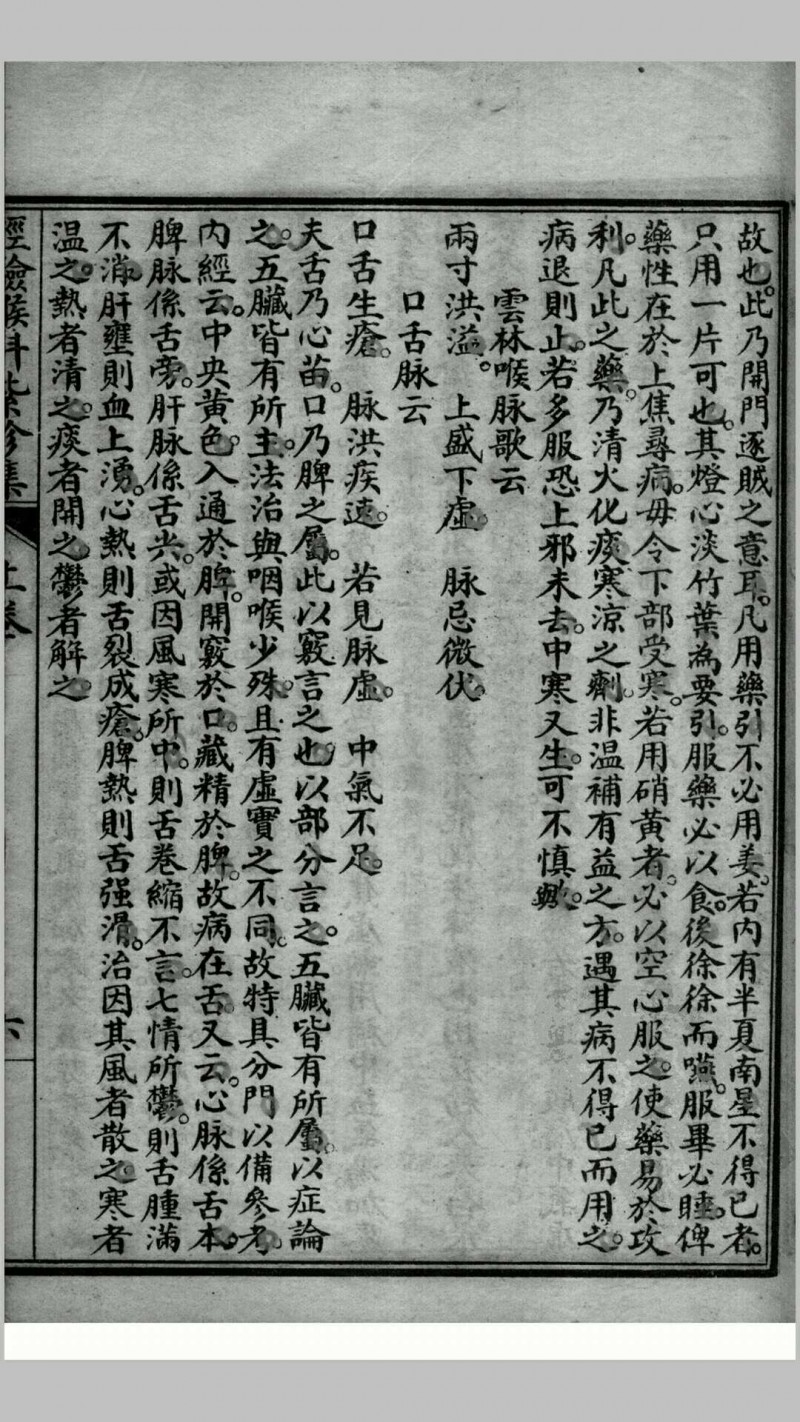 故也。此乃開門逐賊之意耳。凡用藥引不必用姜。若內有半夏南星不得已者。
只用一片可也。其燈心淡竹葉為要引。服藥必以食後徐徐而嚥。服畢必睡。俾
藥性在於上焦尋病。毋令下部受寒。若用硝黃者。必以空心服之。使藥易於攻
利。凡此之藥。乃清火化痰寒涼之劑。非温補有益之方。遇其病不得已而用之。
病退則止。若多服恐上邪未去。中寒又生。可不慎歟。
雲林喉脉歌云
兩寸洪溢。 上盛下虛。 脉忌微伏。
口舌脉云
口舌生瘡。 脉洪疾速。 若見脉虛。 中氣不足。
夫舌乃心苗。口乃脾之屬。此以竅言之也。以部分言之。五臟皆有所屬。以症論
之。五臟皆有所主。法治與咽喉少殊。且有虛實之不同。故特具分門以備參考。
內經云。中央黃色。入通於脾。開竅於口。藏精於脾。故病在舌。又云。心脉係舌本。
脾脉係舌旁。肝脉係舌尖。或因風寒所中。則舌卷縮不言。七情所鬱。則舌腫滿
不消。肝壅則血上湧。心熱則舌裂成瘡。脾熱則舌强滑。治因其風者散之。寒者
温之。熱者清之。痰者開之。鬱者解之。
經驗喉科紫珍集
上卷
六